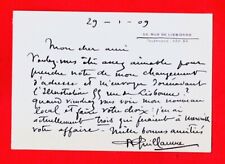 29 - 1 - 09
55, RUE DE LISBONNE
TÉLÉPHONE
Mon cher ami
Voulez-vous être assez aimable pour
prendre note de mon changement
d'adresse et m'envoyer dorénavant
l'Illustration 55 rue de Lisbonne ?
quand viendrez vous voir mon nouveau
local et faire votre choix, j'ai
actuellement trois qui feraient à merveille
votre affaire. Mille bonnes amitiés
AGuillaume